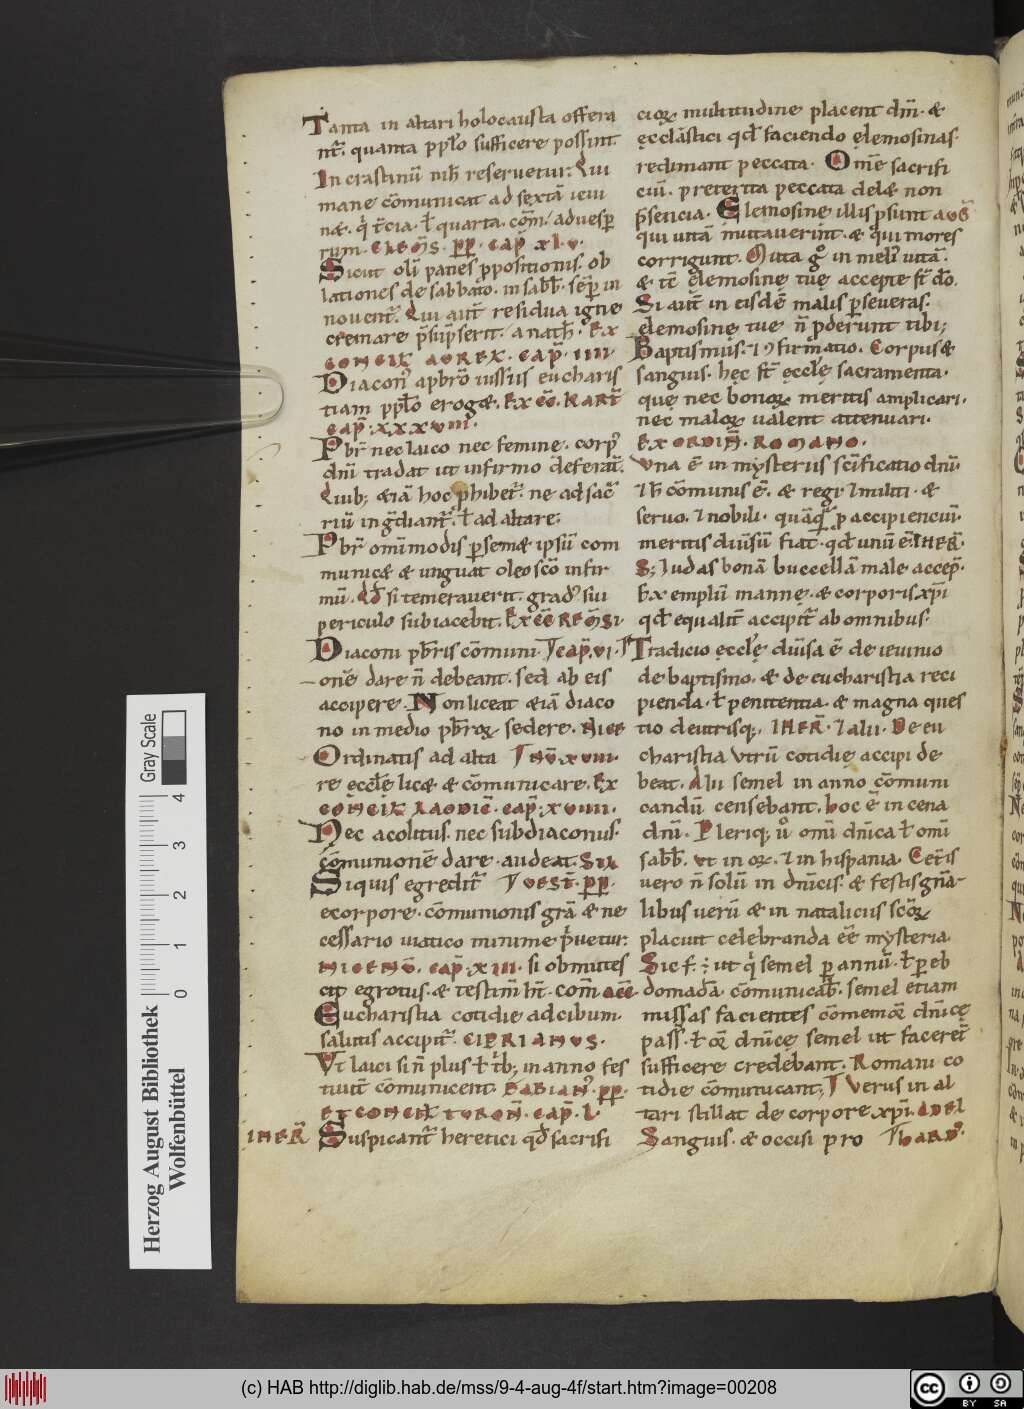 Tanta in altari holocausta offera
nt̄. quanta pplo sufficere possint
In crastinū nih̄ reseruetur. Qui
mane cōmunicat ad sextā ieiu
næ. q̇ t̄cia. ł quarta. cōm̄. aduesp̄
rum. CLEM̄S. PP. CAP̄ XL.V.
Sicut oli panes ppositionis. ob
lationes de sabbato. in sabb̄. sēp in
nouent̄. Qui aut̄ residua igne
cremare p̄sūpserit. anath̄. EX
CONCIL̄ AOREX. CAP̄. IIII.
Diacon᾽ apbr̄o iussus eucharis
tiam pplo eroget. EX CC̄. KART̄
CAP̄. XXXVIII.
Pbr̄ nec laico nec femine. corp᾽
dnī tradat ut infirmo deferat̄.
Quib; etiā hoc phibet̄. ne ad sac̄
riū ingdiant̄. ł ad altare.
Pbr̄ omīmodis p semæ ipsū com
municæ & unguat oleo sc̄o infir
mū. Qd̄ si temerauerit. grad᾽ sui
periculo subiacebit. EX CC̄ REM̄SI.
Diaconi pbr̄is cōmuni CAP̄. VI.
onē dare n̄ debeant. sed ab eis
accipere. Non liceat etiā diaco
no in medio pbr̄oꝝ sedere. NICE
Ordinatis ad alta NŪ. XVIII.
re ęccłę licæ & cōmunicare. EX
CONCIL̄ LAODIC̄. CAP̄. XVIIII.
Nec acolitus. nec subdiaconus.
cōmunionē dare audeat. SIL
Siquis egredit̄ VEST̄. PP.
ecorpore. cōmunionis grā & ne
cessario uiatico minime p̄uetur.
NICENŪ. CAP̄. XIII. si obmutes
cit egrotus. & testim̄ ht̄. com̄
Eucharistia cotidie ad cibum.
salutis accipit̄. CIPRIANVS.
Vt laici si n̄ plus ł t̄b; in anno fes
tiuit̄ cōmunicent. FABIAN᾽ PP.
ET CONCIL̄ TVRON̄. CAP̄. L.
IHER̄ Suspicant̄ heretici qd̄ sacrifi
cioꝝ multitudine placent dm̄. &
ecclāstici qd̄ faciendo ęlemosinas.
redimant peccata. Omē sacrifi
ciū. preterita peccata delæ non
p̄sencia. Elemosine illis psunt AVḠ
qui uitā mutauerint. & qui mores
corrigunt. Muta gͦ in meli᾽ uitā.
& tē ęlemosinę tuę accepte st̄ d̄o.
Si aut̄ in eisdē malis pseueras.
ęlemosinę tue n̄ pderunt tibi;
Baptismus. ⁊ ꝯfirmatio. Corpus &
sanguis. hęc st̄ ęccłę sacramenta.
quę nec bonoꝝ meritis amplicari.
nec maloꝝ ualent attenuari.
EX ORDIN̄. ROMANO.
Vna ē in mysteriis sc̄ificatio dnī.
⁊ h̄ cōmunis ē. & regi ⁊ militi. &
seruo. ⁊ nobili. quāq̄ p accipienciū.
meritis diuīsū fiat. qd̄ unū ē. IHER̄.
S; Iudas bonā buccellā male accep̄.
h̄ exemplū mannę. & corporis xp̄i
qd̄ equalit̄ accipit̄ ab omnibus.
Tradicio ęccłę diuīsa ē de ieiunio
de baptismo. & de eucharistia reci
pienda. ł penitentia. & magna ques
tio deutrisq; IHER̄. ⁊ alii. De eu
charistia Vtrū cotidie accipi de
beat. Alii semel in anno cōmuni
candū censebant. hoc ē in cena
dnī. Pleriq; uͦ omī dnīca ł omī
sabb̄. vt in oꝝ. ⁊ in hispania. Cet̄is
vero n̄ solū in dnīcis. & festis gnā
libus uerū & in nataliciis sc̄oꝝ
placuit celebranda eē mysteria.
Sic f. ÷ ut q̇ semel p annū. ł p eb
domadā. cōmunicab̄. semel etiam
missas facientes cōmemoꝝ dnīcę
pass̄. ł oꝝ dnīcę semel ut faceret̄
sufficere credebant. Romani co
tidie cōmunicant; Verus in al
tari stillat de corpore xp̄i. ADEL
Sanguis. & occisi pro BARD᾽.
Gray Scale
0 1 2 3 4
Herzog August Bibliothek
Wolfenbüttel
(c) HAB http://diglib.hab.de/mss/9-4-aug-4f/start.htm?image=00208
cc BY SA